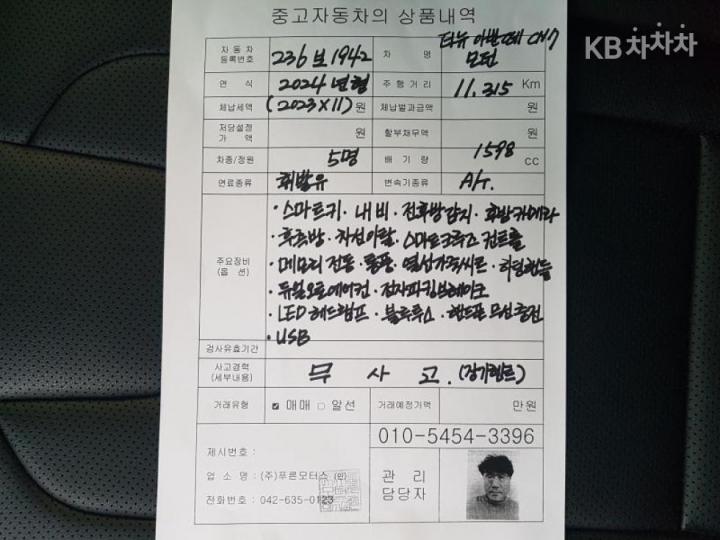 중고자동차의 상품내역
KB차차차
자동차등록번호 236보1942 차 명 더뉴 아반떼 CN7 모던
연 식 2024년형 주행거리 11,315 Km
체납세액 (2023X11)원 체납벌과금액 원
저당설정가 액 원 할부채무액 원
차종/정원 5명 배 기 량 1598 CC
연료종류 휘발유 변속기종류 A/T.
주요장비(옵 션)
·스마트키·내비·전후방감지·후방카메라
·후측방·차선이탈·스마트크루즈컨트롤
·메모리전동·통풍·열선가죽시트·히팅핸들
·듀얼오토에어컨·전자파킹브레이크
·LED헤드램프·블루투스·핸드폰무선충전
·USB
검사유효기간
사고경력(세부내용) 무 사 고.(장기렌트)
거래유형 ☑ 매매 □ 알선 거래예정가액 만원
010-5454-3396
제시번호 :
업 소 명 : (주)푸른모터스 (인)
전화번호 : 042-635-0123
관 리
담당자